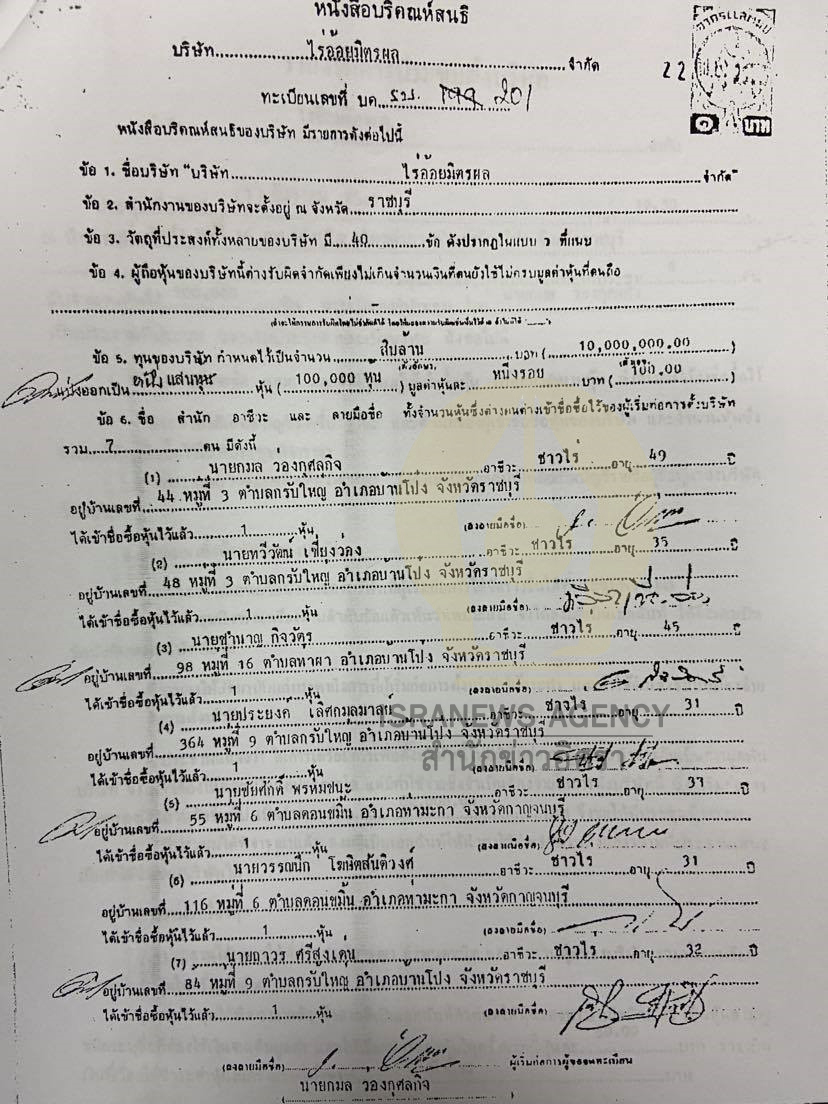 หนังสือบริคณห์สนธิ
บริษัท ไร่อ้อยมิตรผล จำกัด
22
อากรแสตมป์
๑ บาท
ทะเบียนเลขที่ บค. รบ. 201
หนังสือบริคณห์สนธิของบริษัท มีรายการดังต่อไปนี้
ข้อ 1. ชื่อบริษัท "บริษัท ไร่อ้อยมิตรผล จำกัด"
ข้อ 2. สำนักงานของบริษัทจะตั้งอยู่ ณ จังหวัด ราชบุรี
ข้อ 3. วัตถุที่ประสงค์ทั้งหลายของบริษัท มี 40 ข้อ ดังปรากฏในแบบ ว ที่แนบ
ข้อ 4. ผู้ถือหุ้นของบริษัทนี้ต่างรับผิดจำกัดเพียงไม่เกินจำนวนเงินที่ตนยังใช้ไม่ครบมูลค่าหุ้นที่ตนถือ
ข้อ 5. ทุนของบริษัท กำหนดไว้เป็นจำนวน สิบล้าน บาท ( 10,000,000.00 )
แบ่งออกเป็น หนึ่งแสนหุ้น หุ้น ( 100,000 หุ้น ) มูลค่าหุ้นละ หนึ่งร้อย บาท ( 100.00 )
ข้อ 6. ชื่อ สำนัก อาชีวะ และ ลายมือชื่อ ทั้งจำนวนหุ้นซึ่งต่างคนต่างเข้าชื่อซื้อไว้ของผู้เริ่มก่อการตั้งบริษัท
รวม 7 คน มีดังนี้
(1) นายกมล ว่องกุศลกิจ อาชีวะ ชาวไร่ อายุ 49 ปี
อยู่บ้านเลขที่ 44 หมู่ที่ 3 ตำบลกรับใหญ่ อำเภอบ้านโป่ง จังหวัดราชบุรี
ได้เข้าชื่อซื้อหุ้นไว้แล้ว 1 หุ้น (ลงลายมือชื่อ)
(2) นายทวีวัฒน์ เชี่ยงว่อง อาชีวะ ชาวไร่ อายุ 35 ปี
อยู่บ้านเลขที่ 48 หมู่ที่ 3 ตำบลกรับใหญ่ อำเภอบ้านโป่ง จังหวัดราชบุรี
ได้เข้าชื่อซื้อหุ้นไว้แล้ว 1 หุ้น (ลงลายมือชื่อ)
(3) นายชำนาญ กิจวัตร อาชีวะ ชาวไร่ อายุ 45 ปี
อยู่บ้านเลขที่ 98 หมู่ที่ 16 ตำบลท่าผา อำเภอบ้านโป่ง จังหวัดราชบุรี
ได้เข้าชื่อซื้อหุ้นไว้แล้ว 1 หุ้น (ลงลายมือชื่อ)
(4) นายประยงค์ เลิศกมลมาลย์ อาชีวะ ชาวไร่ อายุ 31 ปี
ISRANEWS AGENCY
อยู่บ้านเลขที่ 364 หมู่ที่ 9 ตำบลกรับใหญ่ อำเภอบ้านโป่ง จังหวัดราชบุรี
สำนักข่าวอิศรา
ได้เข้าชื่อซื้อหุ้นไว้แล้ว 1 หุ้น (ลงลายมือชื่อ)
(5) นายชัยศักดิ์ พรหมชนะ อาชีวะ ชาวไร่ อายุ ปี
อยู่บ้านเลขที่ 55 หมู่ที่ 6 ตำบลดอนขมิ้น อำเภอท่ามะกา จังหวัดกาญจนบุรี
ได้เข้าชื่อซื้อหุ้นไว้แล้ว 1 หุ้น (ลงลายมือชื่อ)
(6) นายวรรณนึก โฆษิตสันติวงศ์ อาชีวะ ชาวไร่ อายุ 31 ปี
อยู่บ้านเลขที่ 116 หมู่ที่ 6 ตำบลดอนขมิ้น อำเภอท่ามะกา จังหวัดกาญจนบุรี
ได้เข้าชื่อซื้อหุ้นไว้แล้ว 1 หุ้น (ลงลายมือชื่อ)
(7) นายถาวร ศรีสูงเด่น อาชีวะ ชาวไร่ อายุ 32 ปี
อยู่บ้านเลขที่ 84 หมู่ที่ 9 ตำบลกรับใหญ่ อำเภอบ้านโป่ง จังหวัดราชบุรี
ได้เข้าชื่อซื้อหุ้นไว้แล้ว 1 หุ้น (ลงลายมือชื่อ)
(ลงลายมือชื่อ) ผู้เริ่มก่อการผู้ขอจดทะเบียน
( นายกมล ว่องกุศลกิจ )